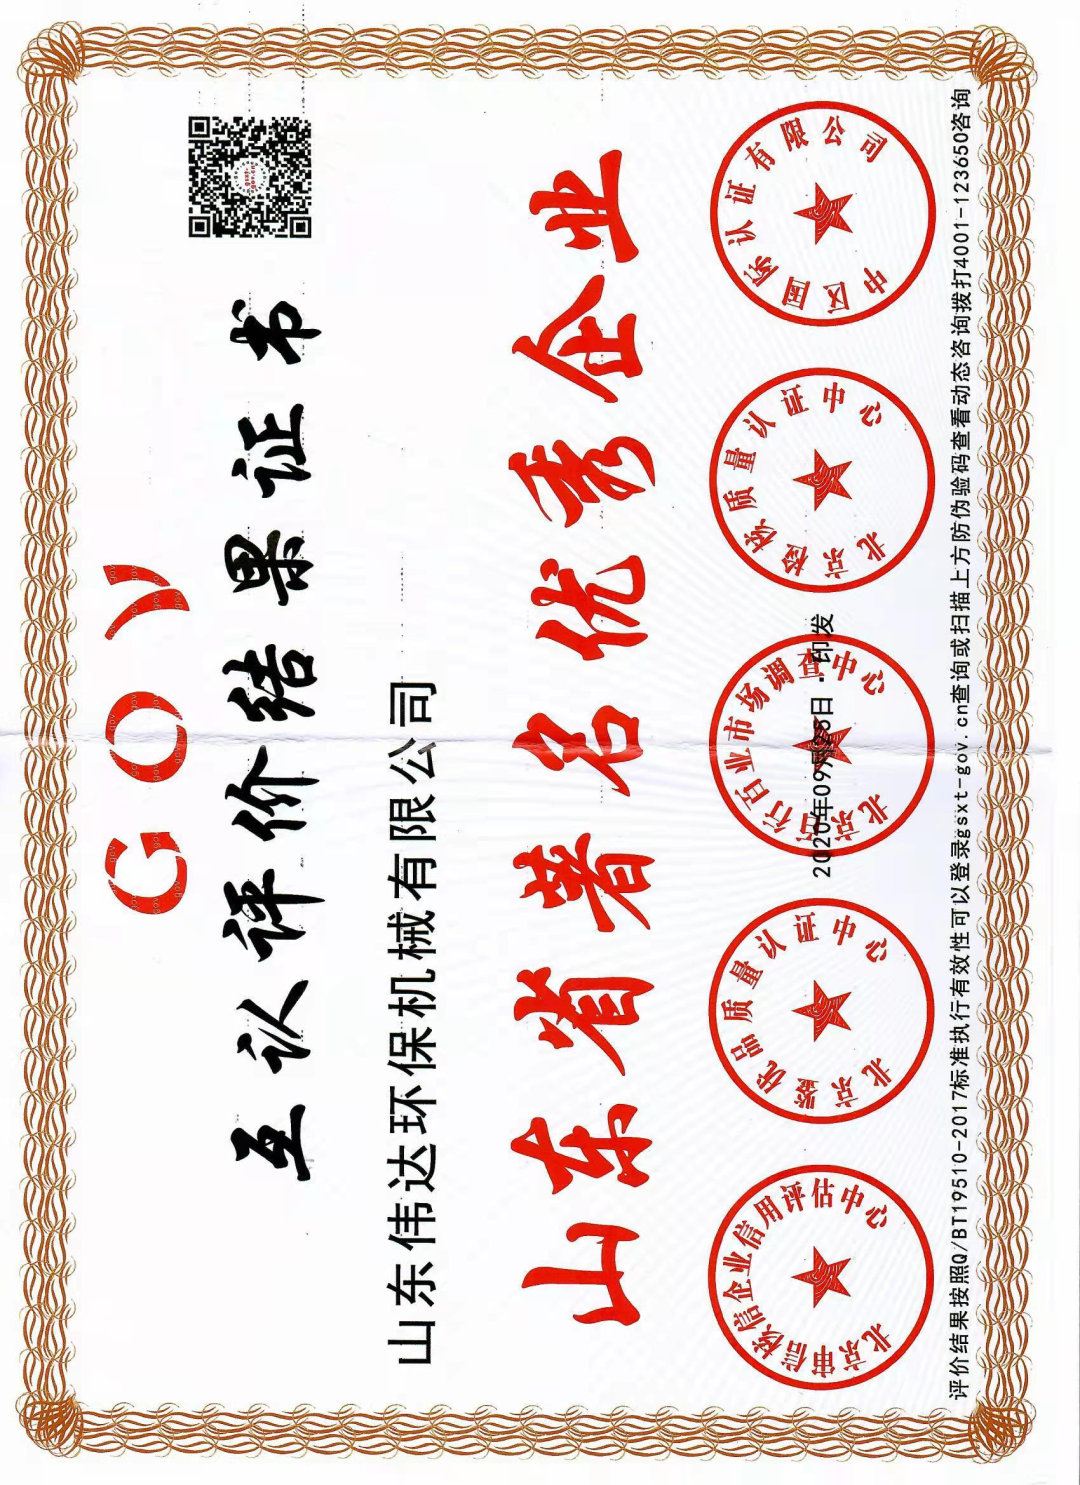 GOV
互认评价结果证书
山东伟达环保机械有限公司
山东省著名优秀企业
北京审信核信企业信用评估中心
北京鉴优品质量认证中心
北京百行百业市场调查中心
北京检标质量认证中心
中区国际认证有限公司
2020年09月25日·印发
评价结果按照Q/BT19510-2017标准执行有效性可以登录gsxt-gov.cn查询或扫描上方防伪验码查看动态咨询拨打4001-123650咨询